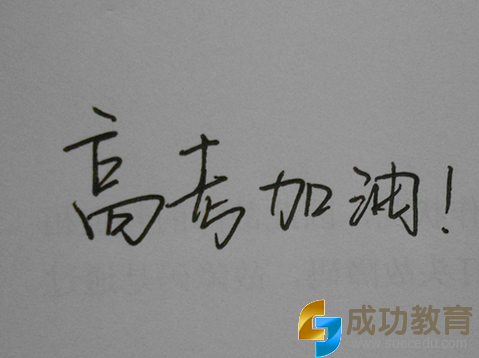 高考加油!
成功教育
www.suecedu.com